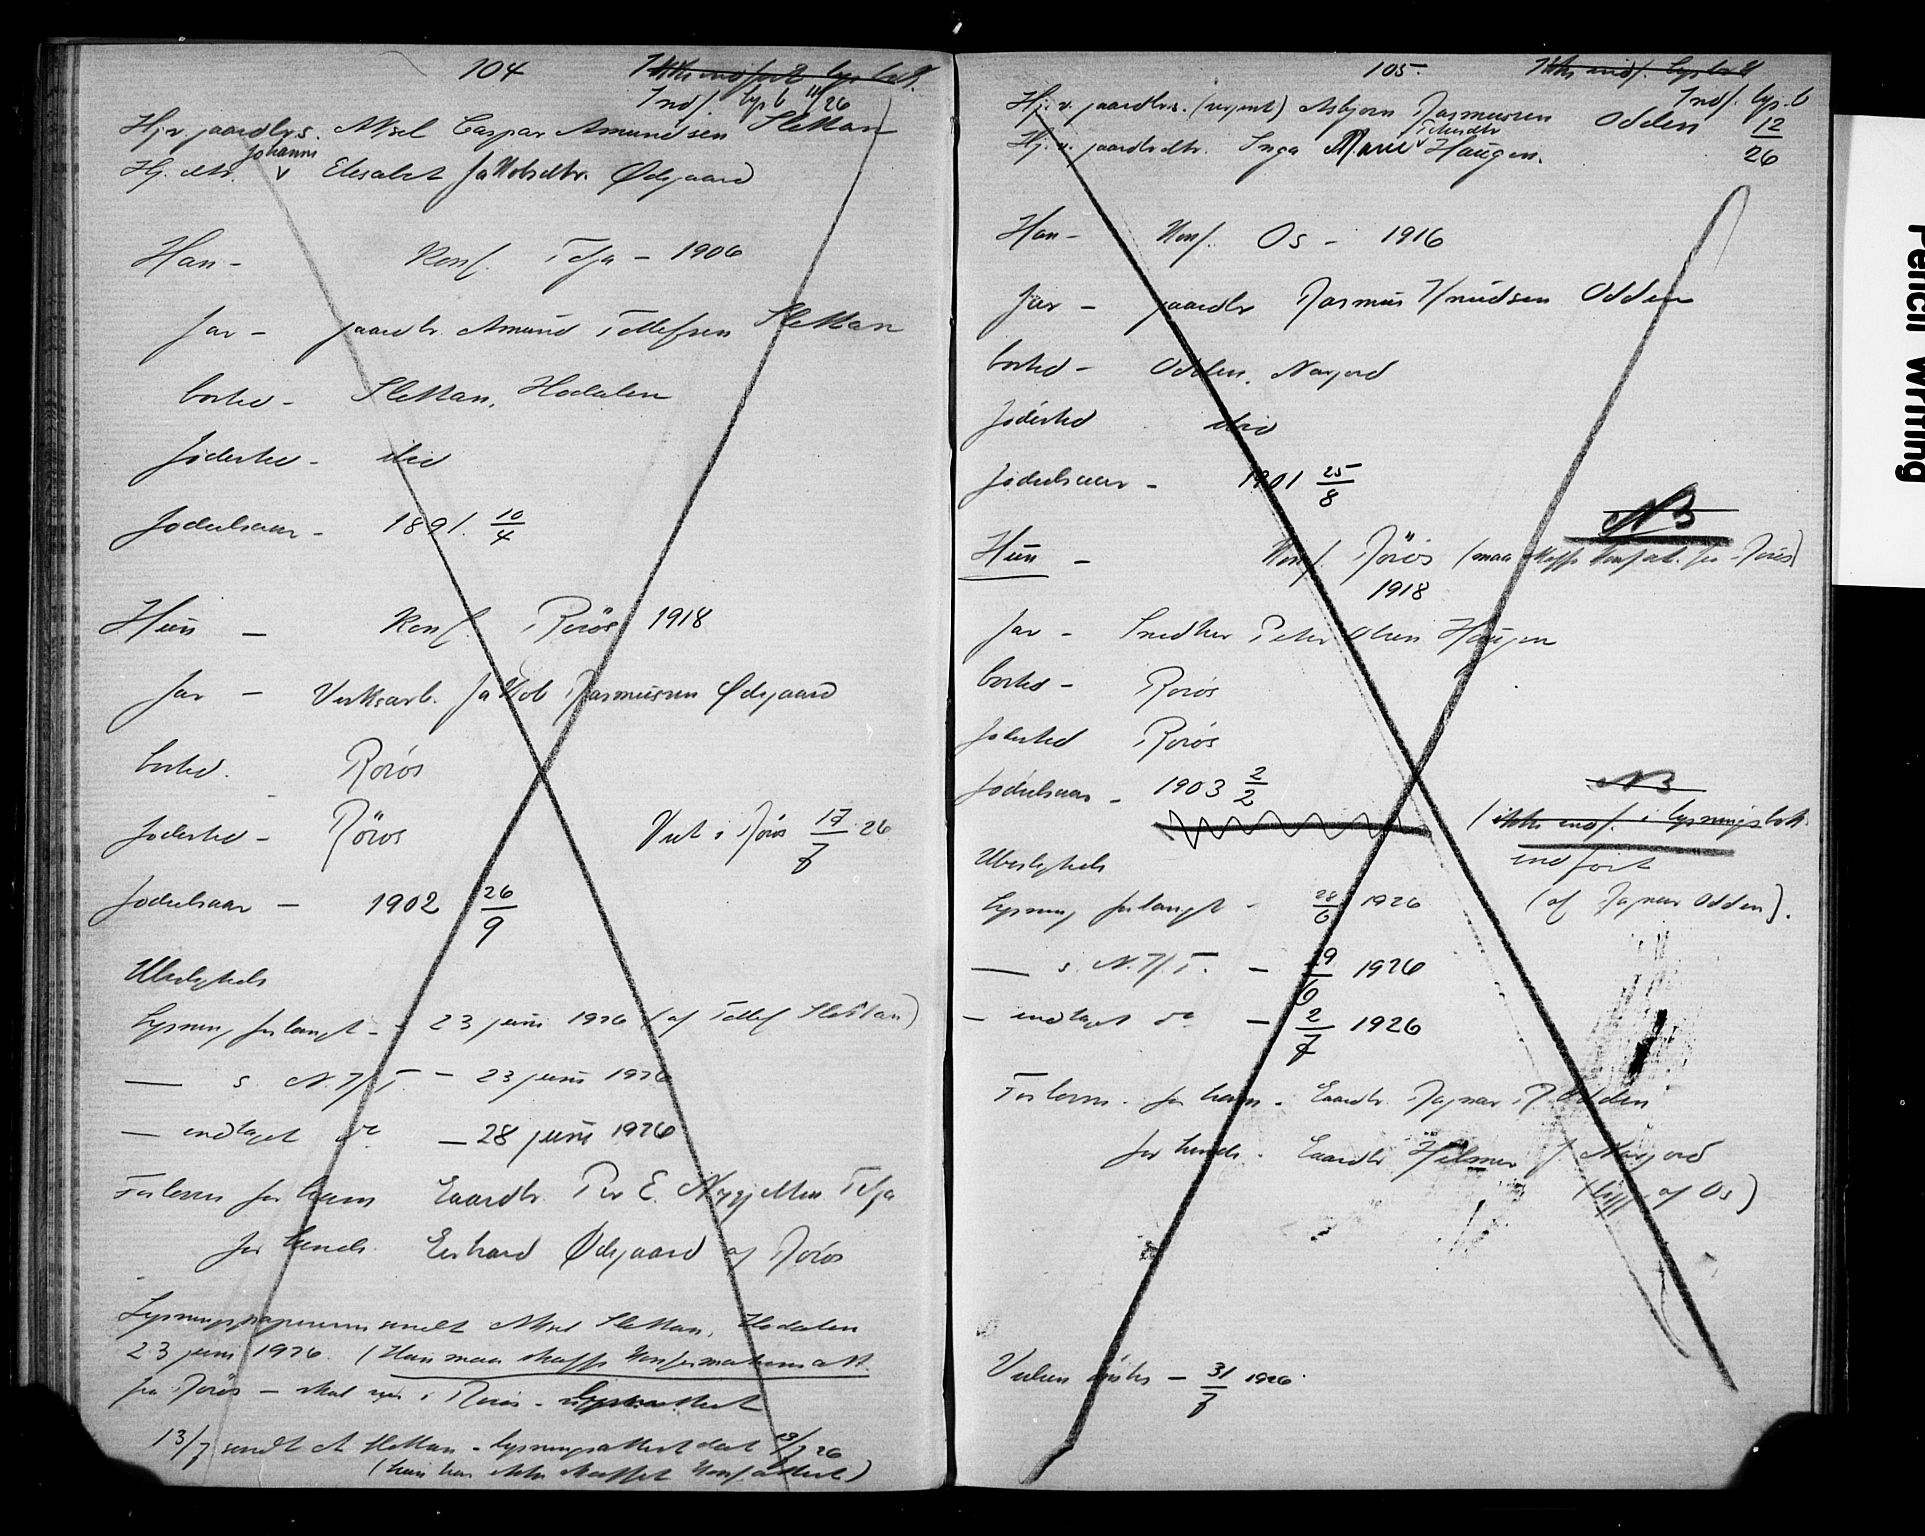 104
Ikke indført lysbok.
Indf. lysb 11/26
Hj. v. gaardbrs. Aksel Caspar Amundsen Slettan
Johanne
Hj. dtr. v Elisabet Jakobsdtr. Ødegaard
Han - Konf. Tolga - 1906
far - gaardbr. Amund Tollefsen Slettan
bosted - Slettan, Hodalen
fødested - do
fødselsaar - 1891. 10/4
Hun - Konf. Röros 1918
far - Verksarb. Jakob Rasmussen Ødegaard
bosted. Röros
fødested - Röros Viet i Röros 17/7 26
fødselsaar - 1902 26/9
Ubeslegtede
Lysning forlangt - 23 juni 1926 (af Tollef Slettan)
— s. N.T. - 23 juni 1926
— indtaget do - 28 juni 1926
Forlover for ham Gaardbr. Per E. Nygjelten Tolga
for hende. Erhard Ødegaard af Röros
Lysningspapirerne sendt Aksel Slettan, Hodalen
23 juni 1926. (Han maa skaffe Konfirmationsatt.
fra Röros - skal vies i Röros -
13/7 sendt A Slettan - lysningsattest dat 13/7 26
(hun har ikke skaffet Konfattest)
105.
Ikke indf. lysbok
Indf. lys.b
12/26
Hj. v. gaardbrs. (ungk.) Asbjørn Rasmussen Odden
Petersdtr
Hj. v. gaardbrdtr. Inga Marie v Haugen.
Han - Konf. Os - 1916
far - gaardbr Rasmus Knudsen Odden
bosted - Odden, Narjord
fødested do
fødselsaar - 1901 25/8
NB
Hun - Konf. Röros (maa skaffe Konfatt. fra Röros)
1918
far - Snedker Peter Olsen Haugen
bosted - Röros
fødested Röros
fødselsaar - 1903 2/2
NB
(ikke indf. i lysningsbok
indført
Ubeslegtede
Lysning forlangt - 28/6 1926 (af Ragnar Odden).
— s. N.T. - 29/6 1926
— indtaget do - 2/7 1926
Forlover. for ham - Gaardbr. Ragnar R. Odden
for hende - Gaardbr Hilmar J. Narjord
(begge af Os)
Vielsen ønskes - 31/7 1926.
Pencil Writing